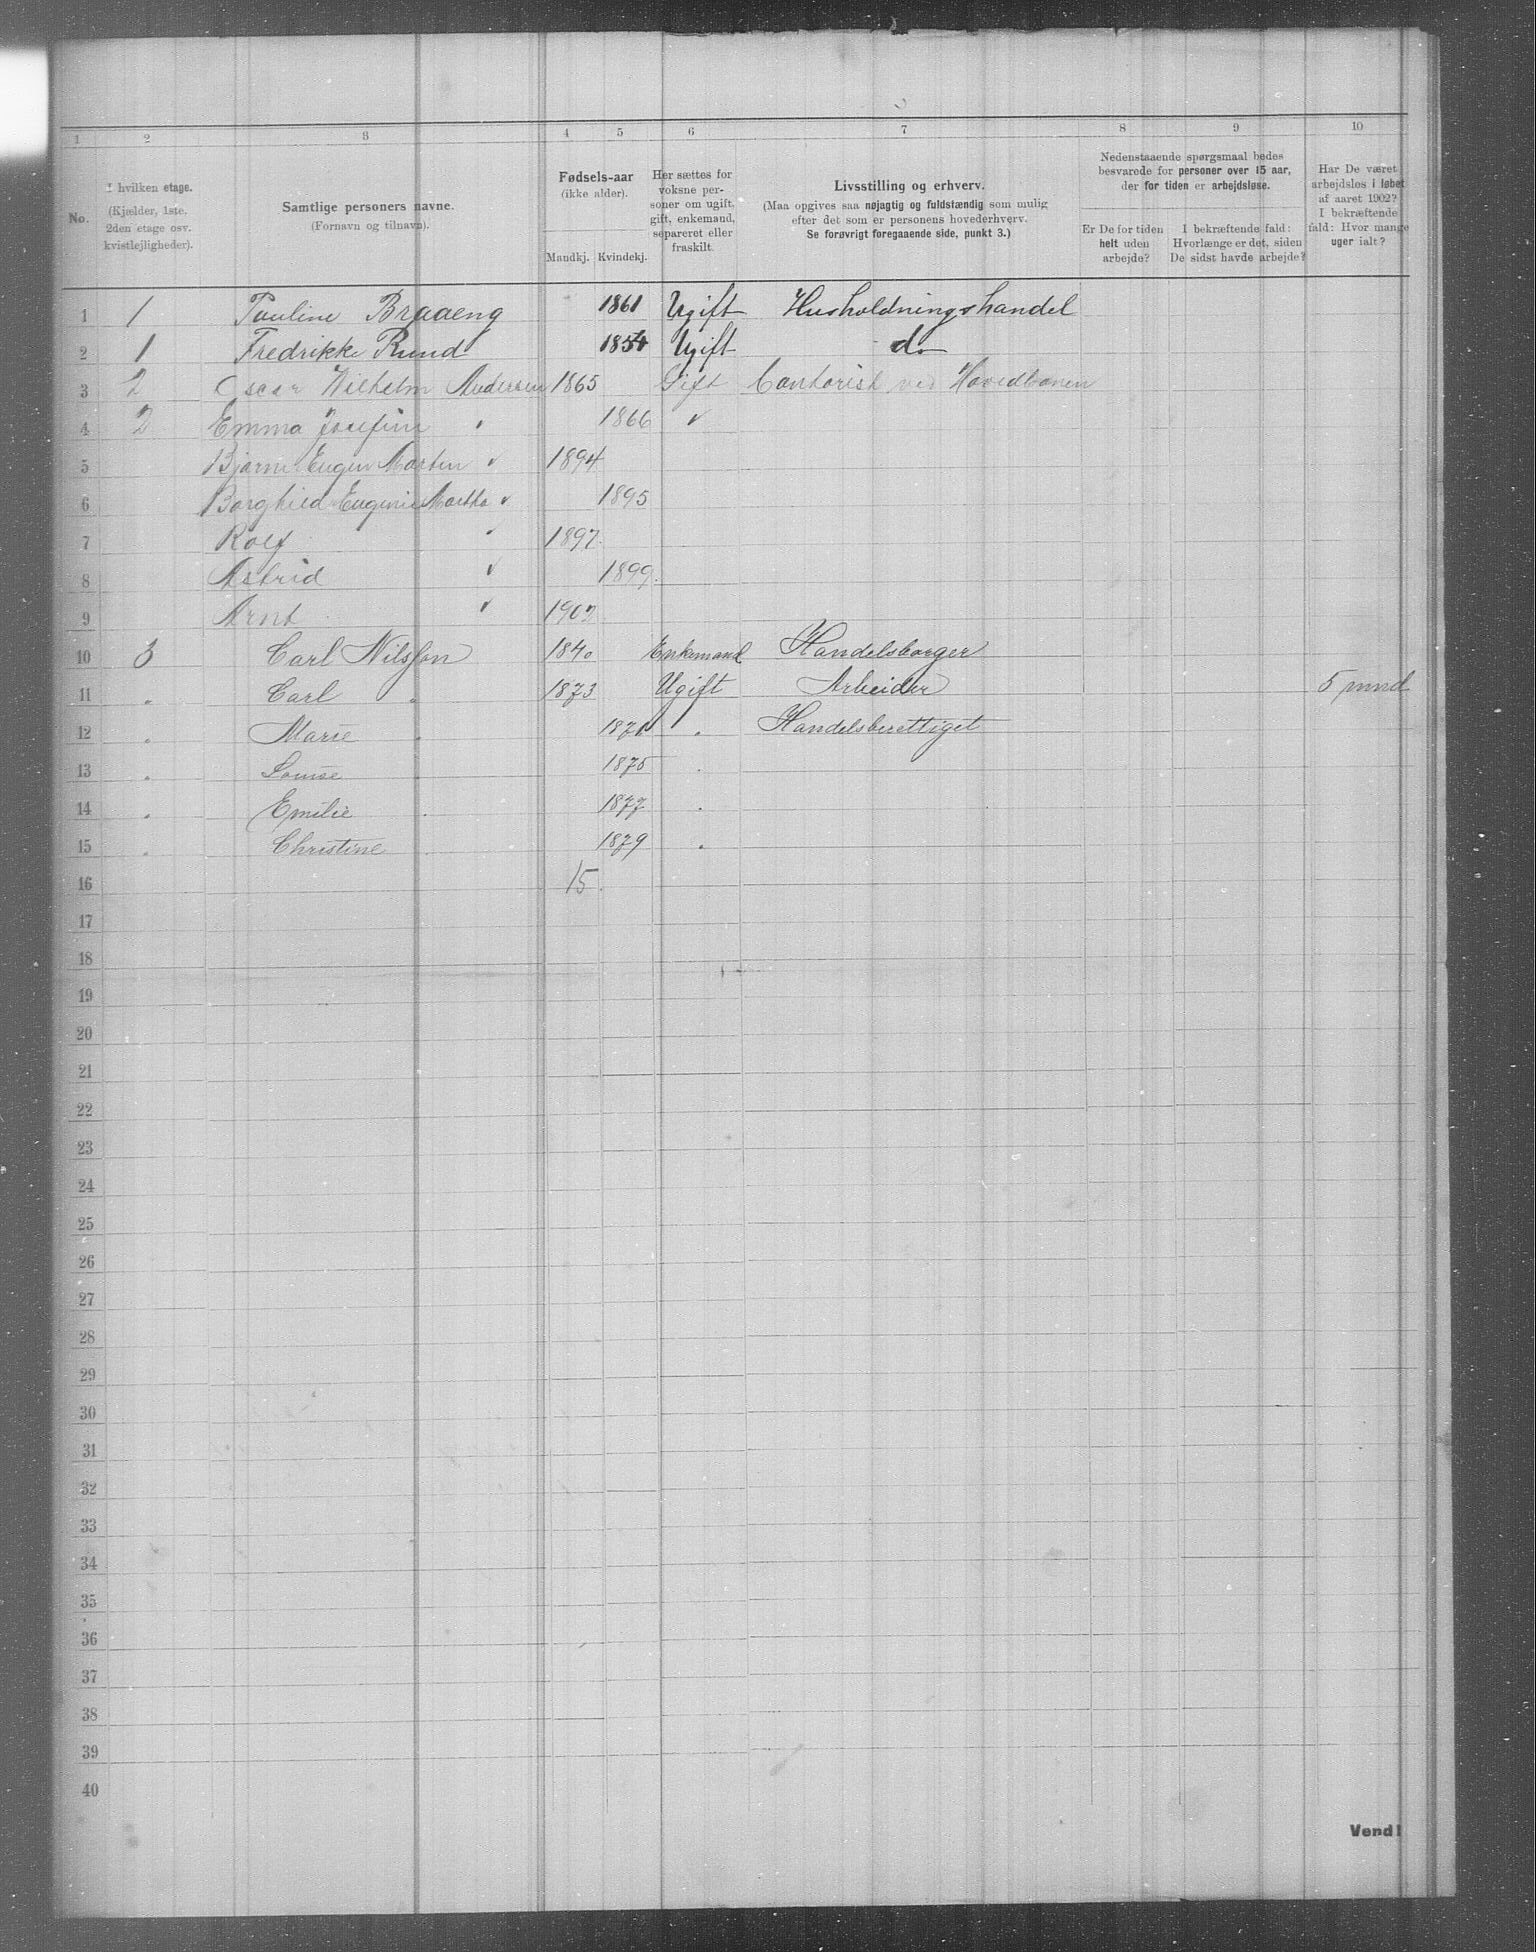 1 2 3 4 5 6 7 8 9 10
No.
I hvilken etage.
(Kjælder, 1ste.
2den etage osv.
kvistlejligheder).
Samtlige personers navne.
(Fornavn og tilnavn).
Fødsels-aar
(ikke alder).
Mandkj. Kvindekj.
Her sættes for
voksne per-
soner om ugift,
gift, enkemand,
separeret eller
fraskilt.
Livsstilling og erhverv.
(Maa opgives saa nøjagtig og fuldstændig som mulig
efter det som er personens hovederhverv.
Se forøvrigt foregaaende side, punkt 3.)
Nedenstaaende spørgsmaal bedes
besvarede for personer over 15 aar,
der for tiden er arbejdsløse.
Er De for tiden
helt uden
arbejde?
I bekræftende fald:
Hvorlænge er det, siden
De sidst havde arbejde?
Har De været
arbejdsløs i løbet
af aaret 1902?
I bekræftende
fald: Hvor mange
uger ialt?
1 1 Pauline Braaeng 1861 Ugift Husholdningshandel
2 1 Fredrikke Rund 1854 Ugift do
3 2 Oscar Wilhelm Andersen 1865 Gift Contorist ved Hovedbanen
4 2 Emma Josefine " 1866 "
5 Bjarne Eugen Morten " 1894
6 Borghild Eugenie Martha " 1895
7 Rolf " 1897
8 Astrid " 1899
9 Arnt " 1902
10 3 Carl Nilsson 1840 Enkemand Handelsborger
11 " Carl " 1873 Ugift Arbeider 5 mnd
12 " Marie " 1871 " Handelsberettiget
13 " Louise " 1875 "
14 " Emilie " 1877 "
15 " Christine " 1879 "
16 15
17
18
19
20
21
22
23
24
25
26
27
28
29
30
31
32
33
34
35
36
37
38
39
40
Vend!